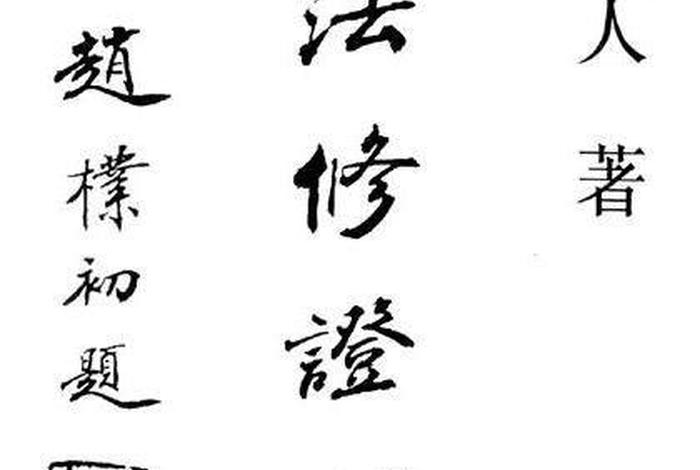 人著
法修證
趙樸初題